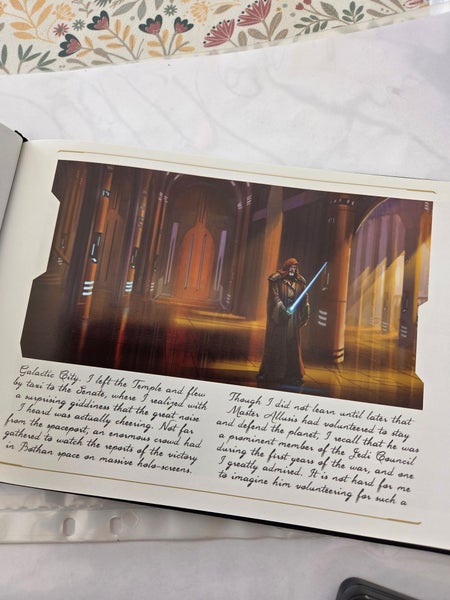 Galactic City. I left the Temple and flew
by taxi to the Senate, where I realized with
a surprising giddiness that the great noise
I heard was actually cheering. Not far
from the spaceport an enormous crowd had
gathered to watch the reports of the victory
in Bothan space on massive holo-screens.
Though I did not learn until later that
Master Allusis had volunteered to stay
and defend the planet, I recall that he was
a prominent member of the Jedi Council
during the first years of the war, and one
I greatly admired. It is not hard for me
to imagine him volunteering for such a